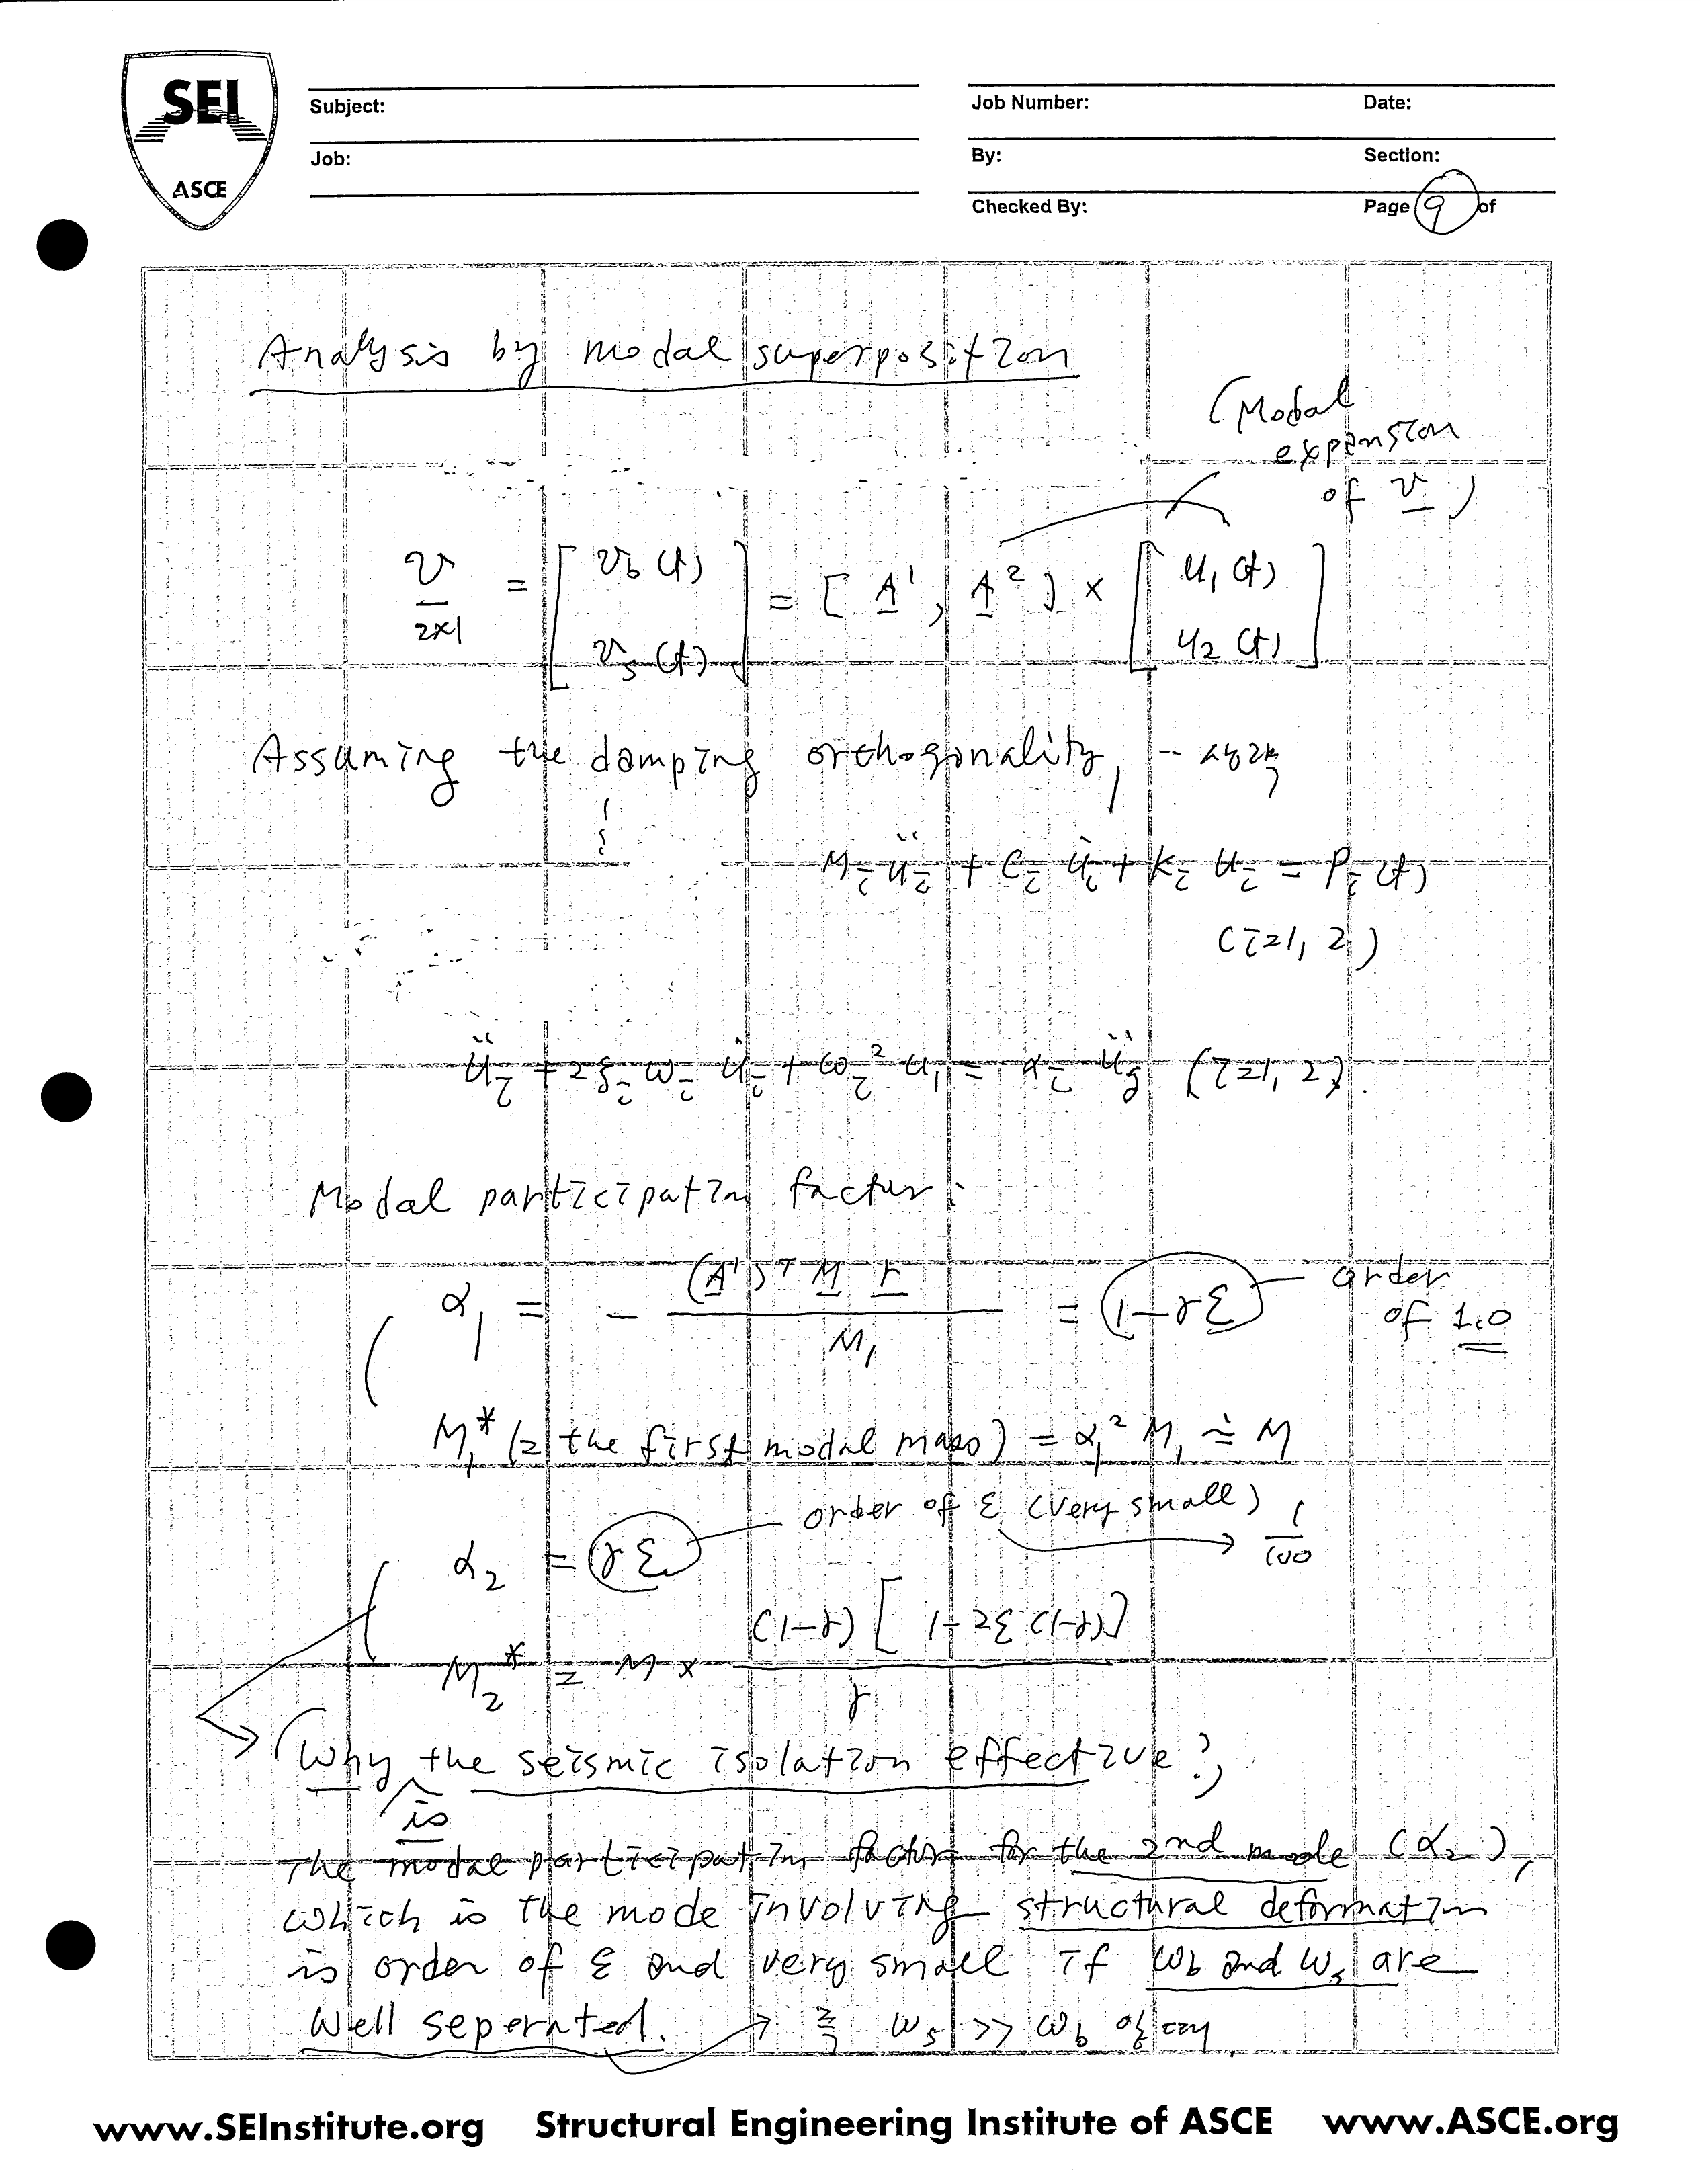 SEI
ASCE
Subject:
Job:
Job Number:
Date:
By:
Section:
Checked By:
Page 9 of
Analysis by modal superposition
(Modal
expension
of v)
v = [ v_b (t) ] = [ A¹, A² ] × [ u₁ (t) ]
2×1 [ v_s (t) ] [ u₂ (t) ]
Assuming the damping orthogonality,
M_i ü_i + C_i u̇_i + K_i u_i = P_i (t)
(i=1, 2)
ü_i + 2ξ_i ω_i u̇_i + ω_i² u_i = α_i ü_g (i=1, 2).
Modal participation factor:
α₁ = - (A¹)ᵀ M r / M₁ = (1-γε) order
of 1.0
M₁* (= the first modal mass) = α₁² M₁ ≒ M
order of ε (very small) 1/100
α₂ = γε
M₂* = M × (1-γ) [ 1-2ε(1-γ) ] / γ
Why is the seismic isolation effective?
The modal participation factor for the 2nd mode (α₂),
which is the mode involving structural deformation
is order of ε and very small if ω_b and ω_s are
well seperated. → ω_s >> ω_b
www.SEInstitute.org Structural Engineering Institute of ASCE www.ASCE.org